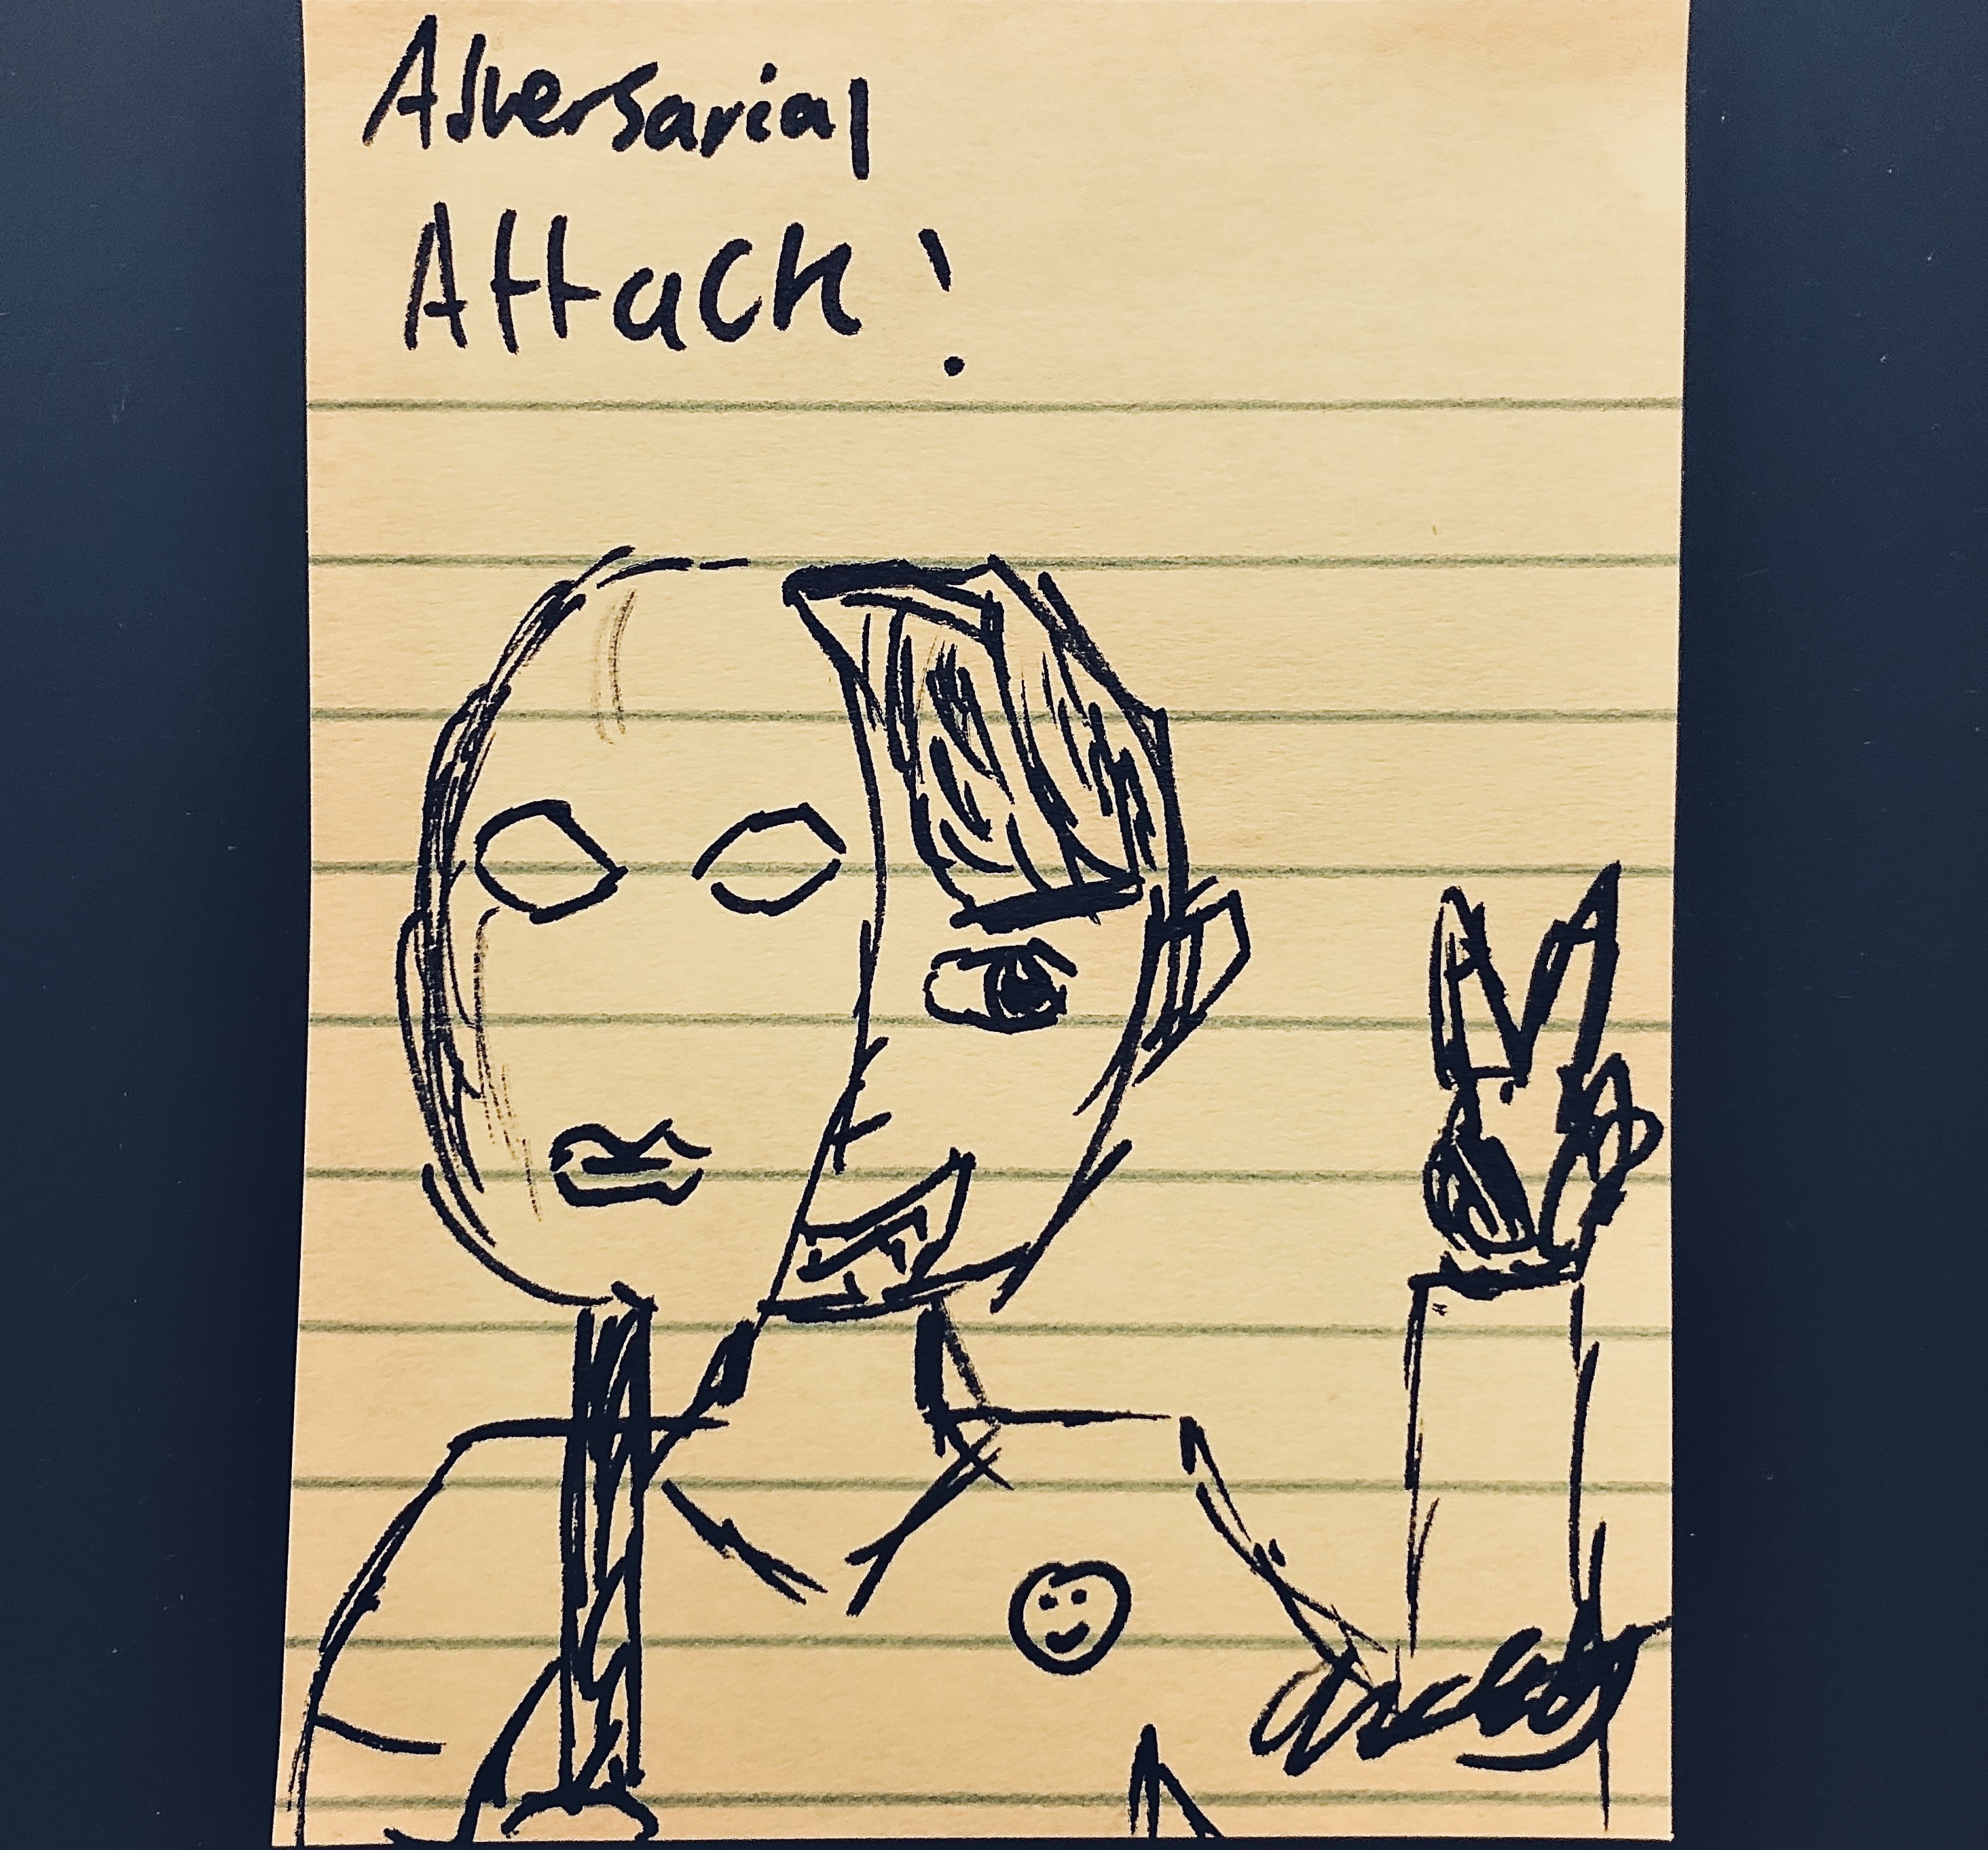 Adversarial
Attack!